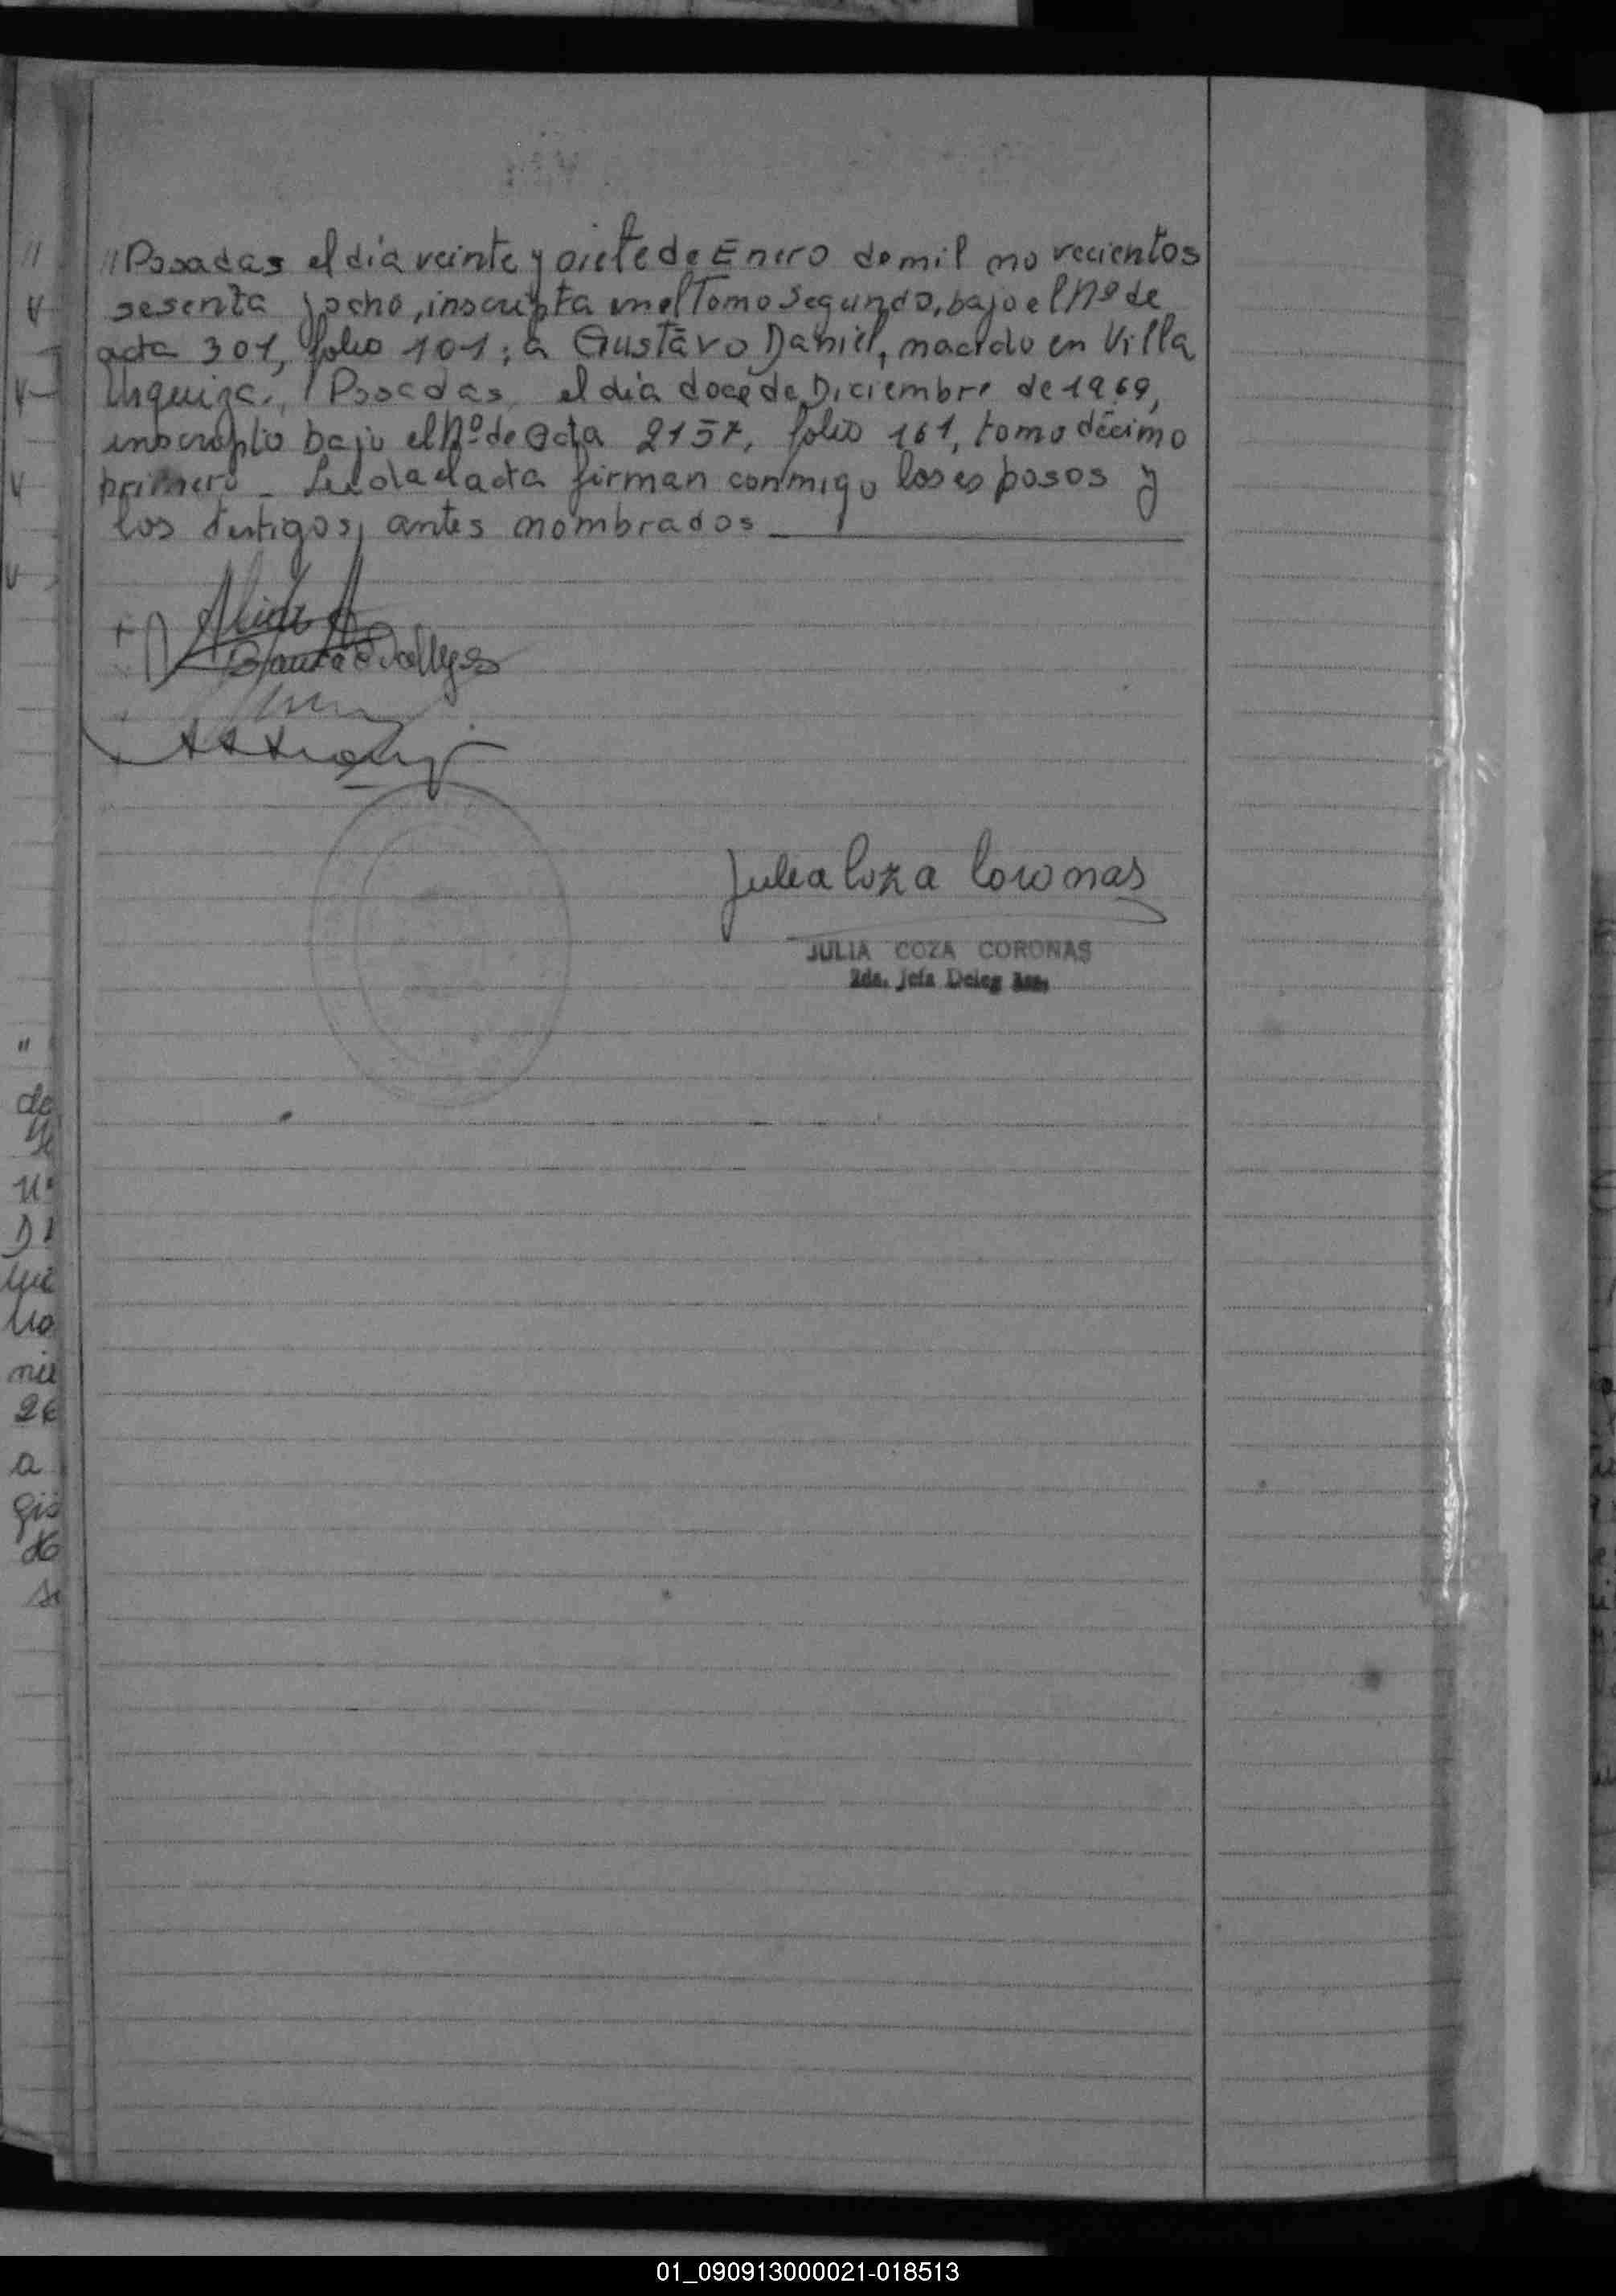 // Posadas el día veinte y siete de Enero de mil novecientos
sesenta y ocho, inscripta en el Tomo Segundo, bajo el Nº de
acta 301, folio 101; a Gustavo Daniel, nacido en Villa
Urquiza, Posadas, el día doce de Diciembre de 1969,
inscripto bajo el Nº de acta 2157, folio 161, tomo décimo
primero _ Leida el acta firman conmigo los esposos y
los testigos, antes nombrados
Julia Coza Coronas
JULIA COZA CORONAS
2da. Jefa Deleg
01_090913000021-018513